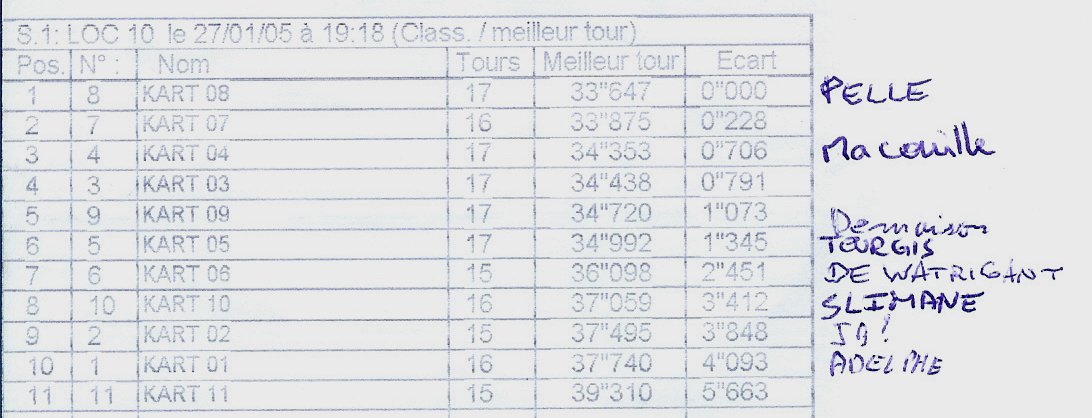 S.1: LOC 10 le 27/01/05 à 19:18 (Class. / meilleur tour)
Pos. N° : Nom Tours Meilleur tour Ecart
1 8 KART 08 17 33"647 0"000 PELLE
2 7 KART 07 16 33"875 0"228
3 4 KART 04 17 34"353 0"706 Macouille
4 3 KART 03 17 34"438 0"791
5 9 KART 09 17 34"720 1"073 Demaison
6 5 KART 05 17 34"992 1"345 TOURGIS
7 6 KART 06 15 36"098 2"451 DE WATRIGANT
8 10 KART 10 16 37"059 3"412 SLIMANE
9 2 KART 02 15 37"495 3"848
10 1 KART 01 16 37"740 4"093 ADELPHE
11 11 KART 11 15 39"310 5"663